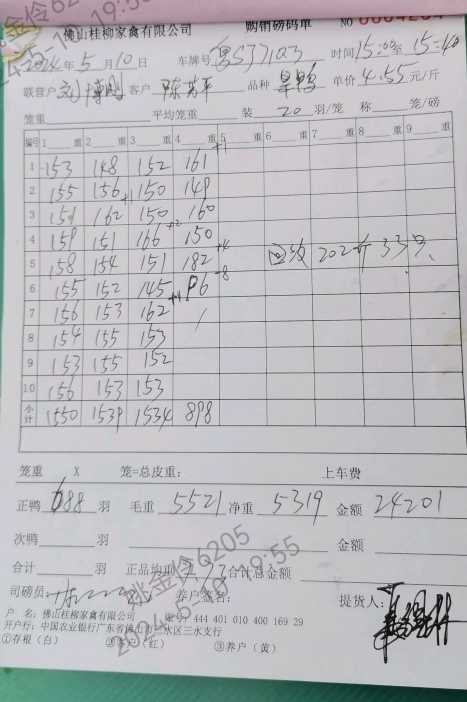 佛山桂柳家禽有限公司 购销磅码单 NO
2024年5月10日 车牌号 时间15:00至15:40
联营户 客户 品种 单价4.55元/斤
笼重 平均笼重 装20羽/笼 称 笼/磅
编号 1 重 2 重 3 重 4 重 5 重 6 重 7 重 8 重 9 重
1 153 148 152 161 +1
2 155 156 +1 150 149
3 151 162 150 160
4 159 151 166 +2 150
5 158 154 151 182 +4 回收 202斤 33只
6 155 152 145 96 -8
7 156 153 162
8 154 155 153
9 153 155 152
10 156 153 153
小计 1550 1539 1534 898
笼重 X 笼=总皮重: 上车费
正鸭 688 羽 毛重 5521 净重 5319 金额 24201
次鸭 羽 金额
合计 羽 正品均重 合计总金额
司磅员 养户签名: 提货人:
户 名:佛山桂柳家禽有限公司 账号:444 401 010 400 169 29
开户行:中国农业银行广东省佛山市三水区三水支行
①存根(白) ②客户(红) ③养户(黄)
姚金伶6205
2024-5-10 19:55